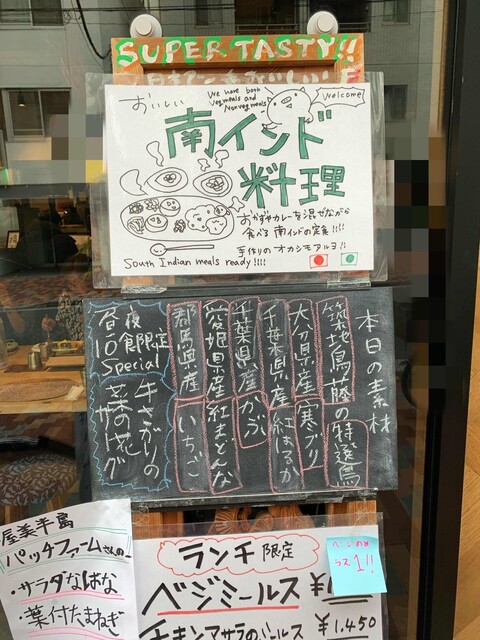 SUPER TASTY!!
おいしい
We have both
Veg meals and
Non veg meals
Welcome!
南インド
料理
おかずやカレーを混ぜながら
食べる 南インドの定食!!!!
手作りのオカシモアルヨ!!
South Indian meals ready!!!!
本日の素材
築地鳥藤の特選鳥
大分県産 寒ブリ
千葉県産 紅はるか
千葉県産 かぶ
愛媛県産 紅まどんな
群馬県産 いちご
昼夜
10食限定
Special
牛さがりの
菜の花
サグ
屋美半島
パッチファームさんの
・サラダなばな
・葉付たまねぎ
ランチ限定
ベジミールス ¥1
チキンマサラのミールス ¥1,450
1!!